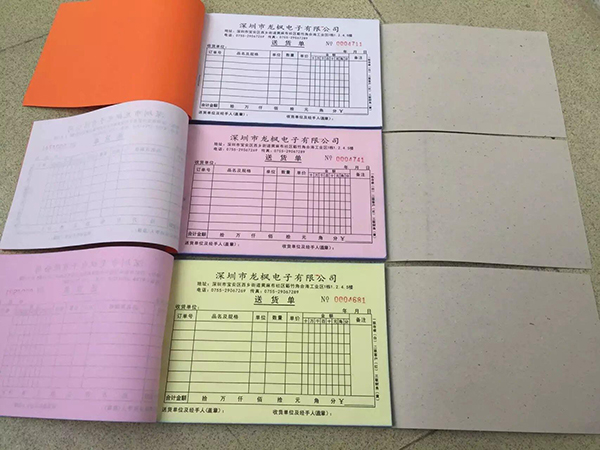 深圳市龙枫电子有限公司
送 货 单 № 0004711
收货单位: 年 月 日
订单号 品名及规格 单位 数量 单价 金额 备注
十万千百十元角分
合计金额 拾 万 仟 佰 拾 元 角 分 ￥
送货单位及经手人(盖章): 收货单位及经手人(盖章):
深圳市龙枫电子有限公司
电话: 0755-29067269 传真: 0755-29067269
送 货 单 № 0004741
收货单位: 年 月 日
订单号 品名及规格 单位 数量 单价 金额 备注
十万千百十元角分
合计金额 拾 万 仟 佰 拾 元 角 分 ￥
送货单位及经手人(盖章): 收货单位及经手人(盖章):
深圳市龙枫电子有限公司
电话: 0755-29067269 传真: 0755-29067269
送 货 单 № 0004681
收货单位: 年 月 日
订单号 品名及规格 单位 数量 单价 金额 备注
十万千百十元角分
合计金额 拾 万 仟 佰 拾 元 角 分 ￥
送货单位及经手人(盖章): 收货单位及经手人(盖章):